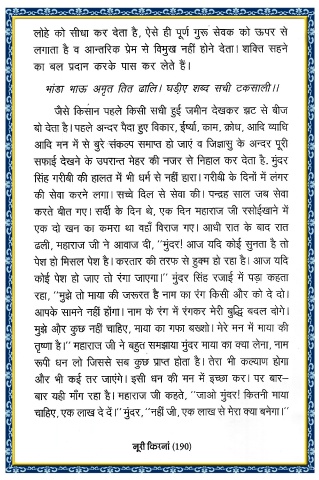 लोहे को सीधा कर देता है, ऐसे ही पूर्ण गुरू सेवक को ऊपर से
लगाता है व आन्तरिक प्रेम से विमुख नहीं होने देता। शक्ति सहने
का बल प्रदान करके पास कर लेते हैं।
भांडा भाऊ अमृत तित ढालि। घड़ीए शब्द सची टकसाली।।
जैसे किसान पहले किसी सधी हुई जमीन देखकर झट से बीज
बो देता है। पहले अन्दर पैदा हुए विकार, ईर्ष्या, काम, क्रोध, आदि व्याधि
आदि मन में से बुरे संकल्प समाप्त हो जाएं व जिज्ञासु के अन्दर पूरी
सफाई देखने के उपरान्त मेहर की नजर से निहाल कर देता है. मुंदर
सिंह गरीबी की हालत में भी धर्म से नहीं हारा। गरीबी के दिनों में लंगर
की सेवा करने लगा। सच्चे दिल से सेवा की। पन्द्रह साल जब सेवा
करते बीत गए। सर्दी के दिन थे, एक दिन महाराज जी रसोईखाने में
एक दो खन का कमरा था वहाँ विराज गए। आधी रात के बाद रात
ढली, महाराज जी ने आवाज दी, ''मुंदर! आज यदि कोई सुनता है तो
पेश हो मिसल पेश है। करतार की तरफ से हुक्म हो रहा है। आज यदि
कोई पेश हो जाए तो रंगा जाएगा।'' मुंदर सिंह रजाई में पड़ा कहता
रहा, ''मुझे तो माया की जरूरत है नाम का रंग किसी और को दे दो।
आपके सामने नहीं होंगा। नाम के रंग में रंगकर मेरी बुद्धि बदल दोगे।
मुझे और कुछ नहीं चाहिए, माया का गफा बख्शो। मेरे मन में माया की
तृष्णा है।'' महाराज जी ने बहुत समझाया मुंदर माया का क्या लेना, नाम
रूपी धन लो जिससे सब कुछ प्राप्त होता है। तेरा भी कल्याण होगा
और भी कई तर जाएंगे। इसी धन की मन में इच्छा कर। पर बार–
बार यही माँग रहा है। महाराज जी कहते, ''जाओ मुंदर! कितनी माया
चाहिए, एक लाख दे दें।'' मुंदर, ''नहीं जी, एक लाख से मेरा क्या बनेगा।''
नूरी किरनां (190)